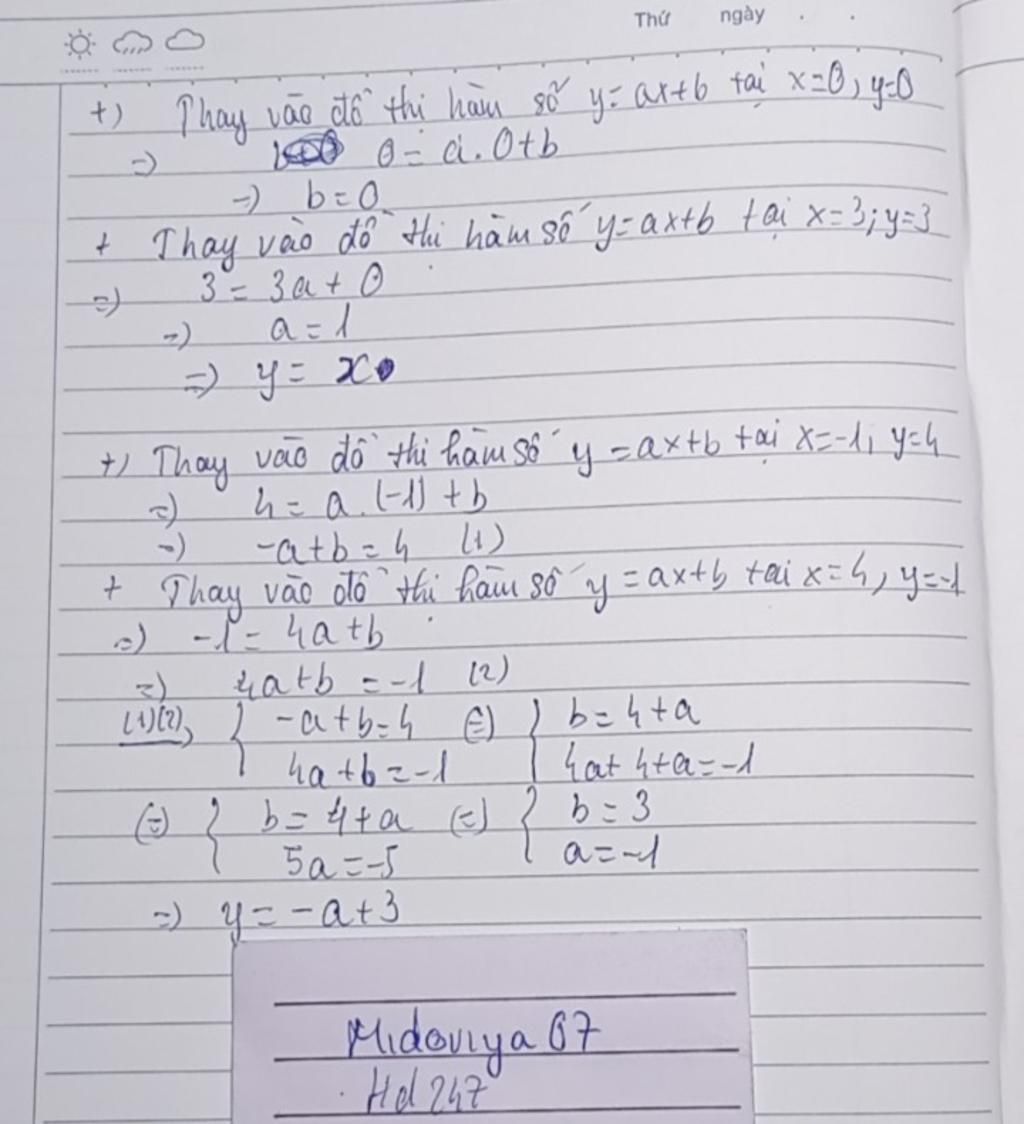 Thứ ngày . .
+) Thay vào đồ thị hàm số y = ax+b tại x=0, y=0
=) 0 = a.0+b
=) b=0
+ Thay vào đồ thị hàm số y=ax+b tại x=3; y=3
=) 3 = 3a + 0
=) a = 1
=) y = x
+) Thay vào đồ thị hàm số y = ax+b tại x=-1, y=4
=) 4 = a.(-1) + b
=) -a+b = 4 (1)
+ Thay vào đồ thị hàm số y = ax+b tại x=4, y=-1
=) -1 = 4a+b
=) 4a+b = -1 (2)
(1)(2), { -a+b=4 (=) { b=4+a
4a+b=-1 4a+4+a=-1
(=) { b=4+a (=) { b=3
5a=-5 a=-1
=) y = -a+3
Midoriya 07
Hd 247